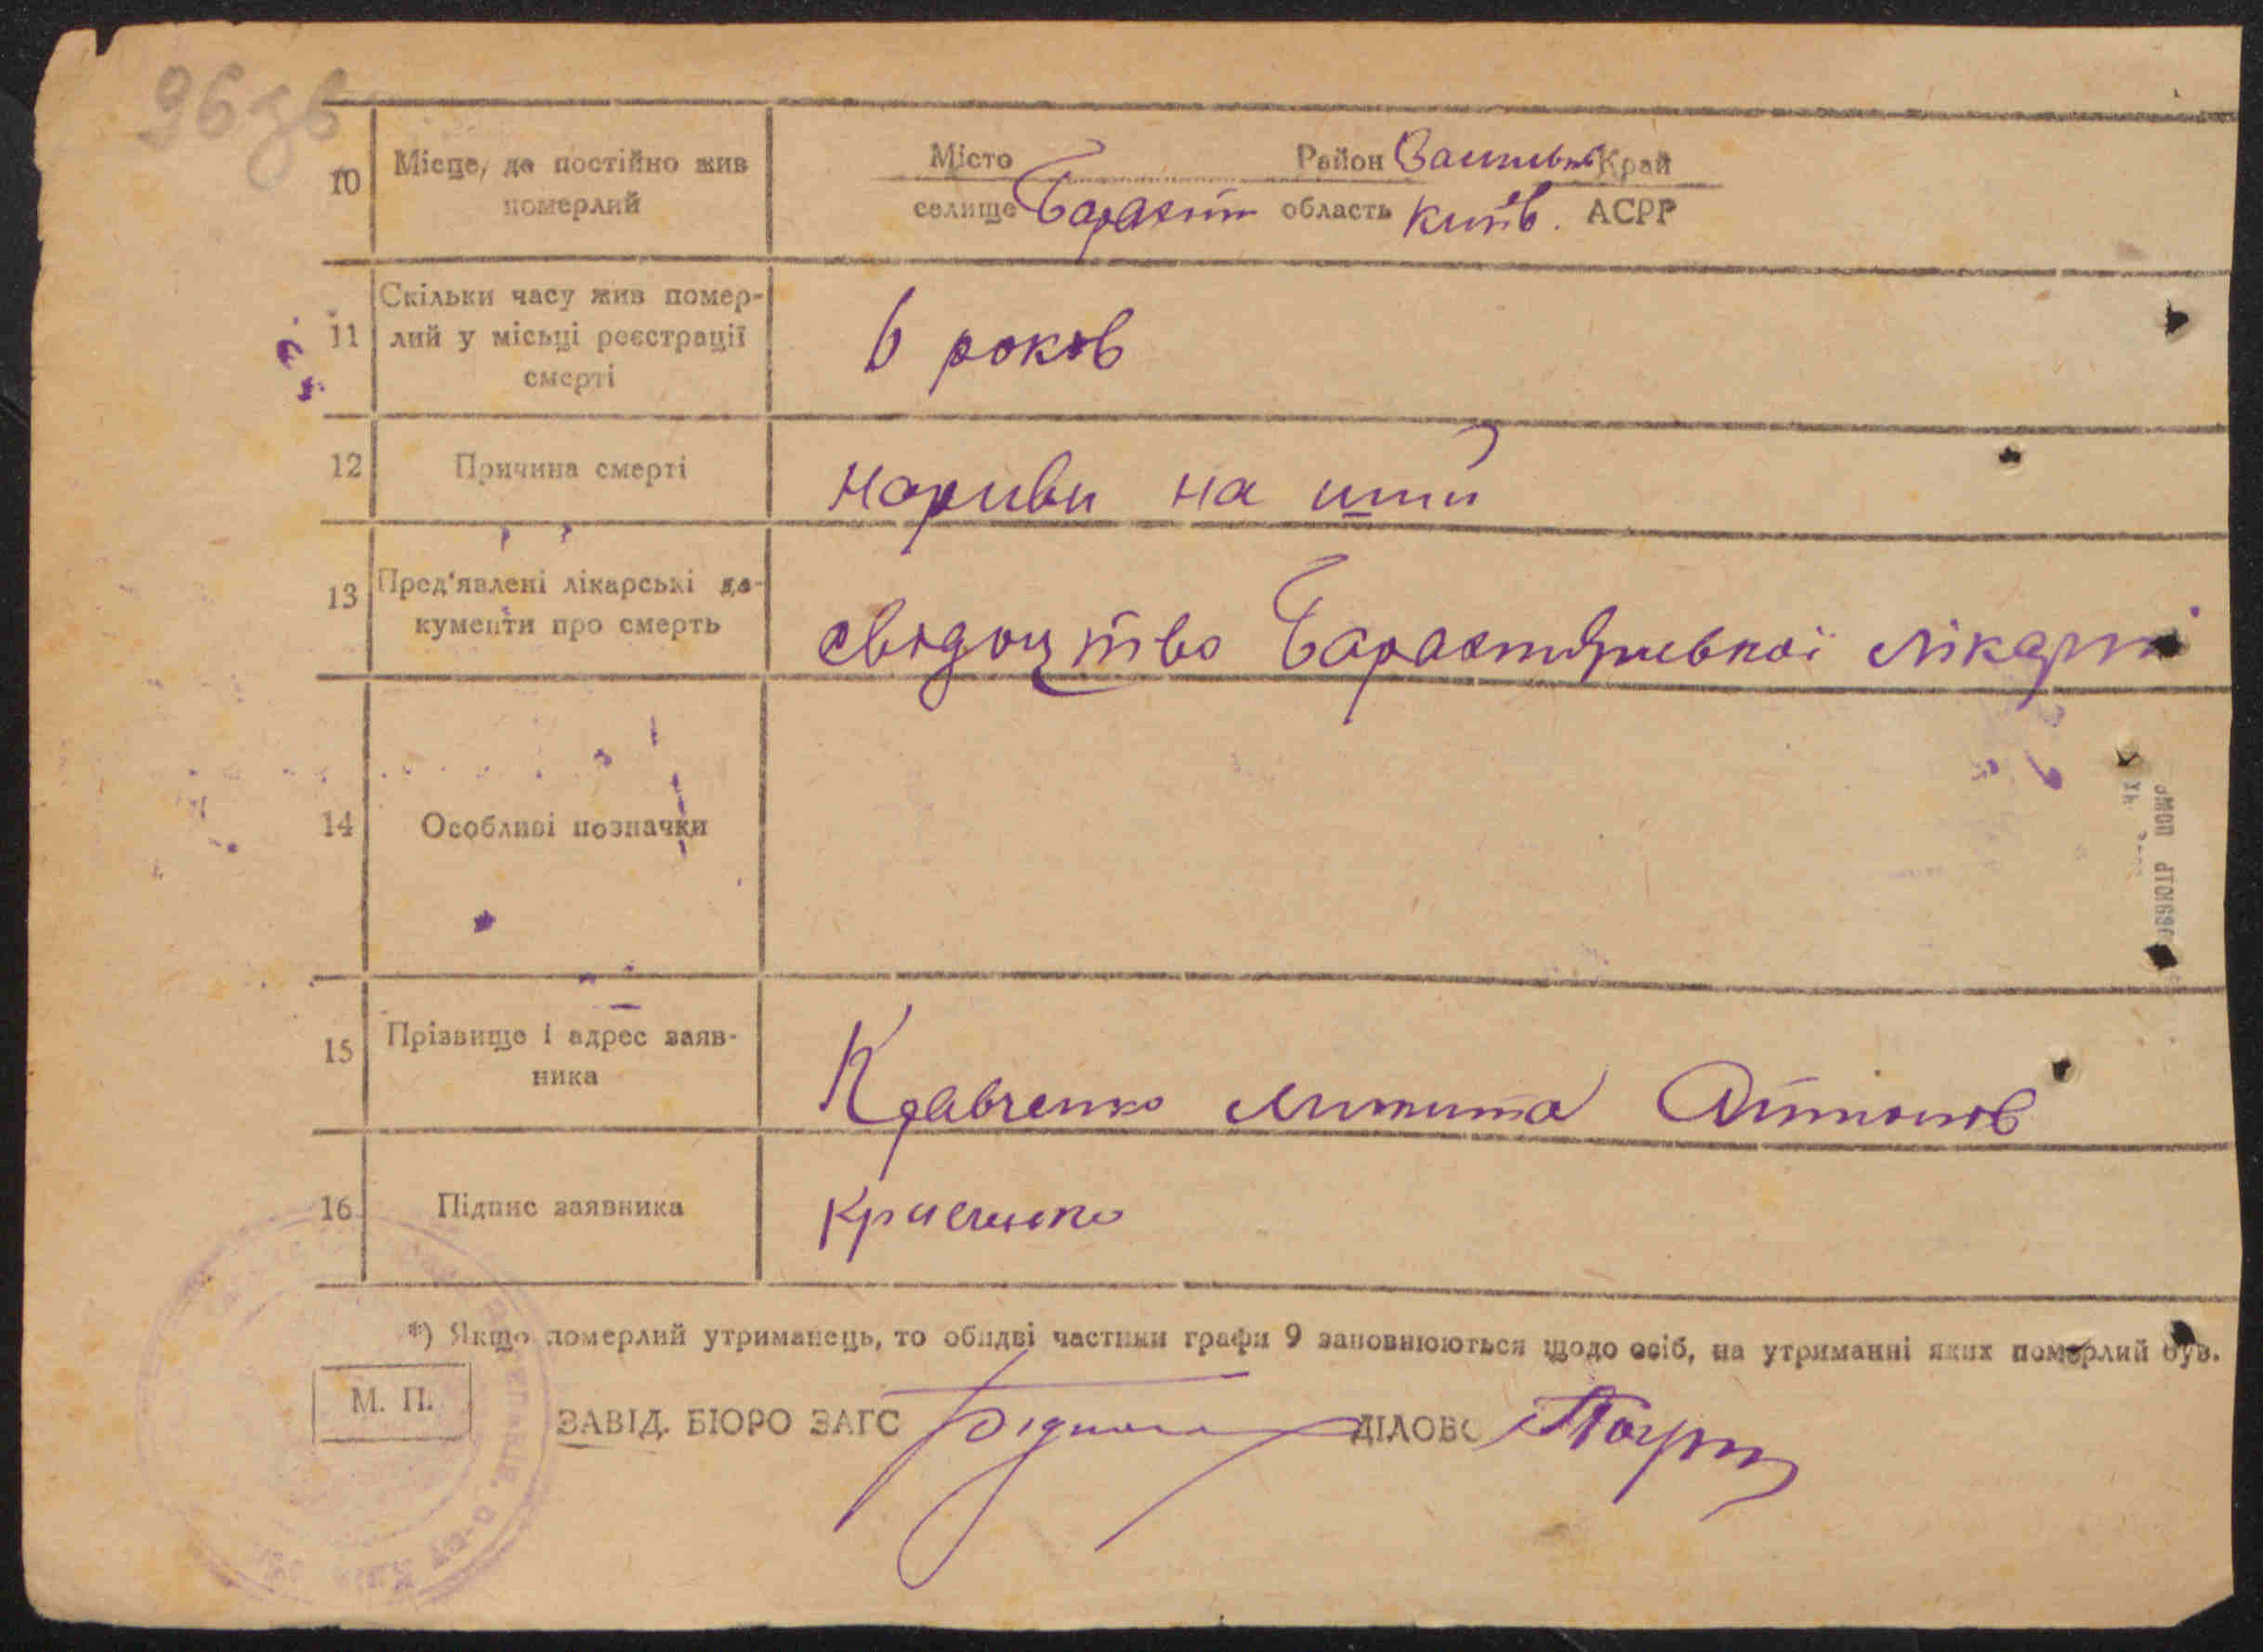 96зв
10 Місце, де постійно жив померлий
Місто Район Василькі Край
селище Барахти область Київ. АСРР
11 Скільки часу жив помер-
лий у місьці реєстрації
смерті
6 років
12 Причина смерті
нариви на шиї
13 Пред'явлені лікарські до-
кументи про смерть
свідоцтво лікарні
14 Особливі позначки
15 Прізвище і адрес заяв-
ника
Кравченко Микита Антонов
16 Підпис заявника
*) Якщо померлий утриманець, то обидві частини графи 9 заповнюються щодо осіб, на утриманні яких померлий був.
М. П.
ЗАВІД. БЮРО ЗАГС ДІЛОВС